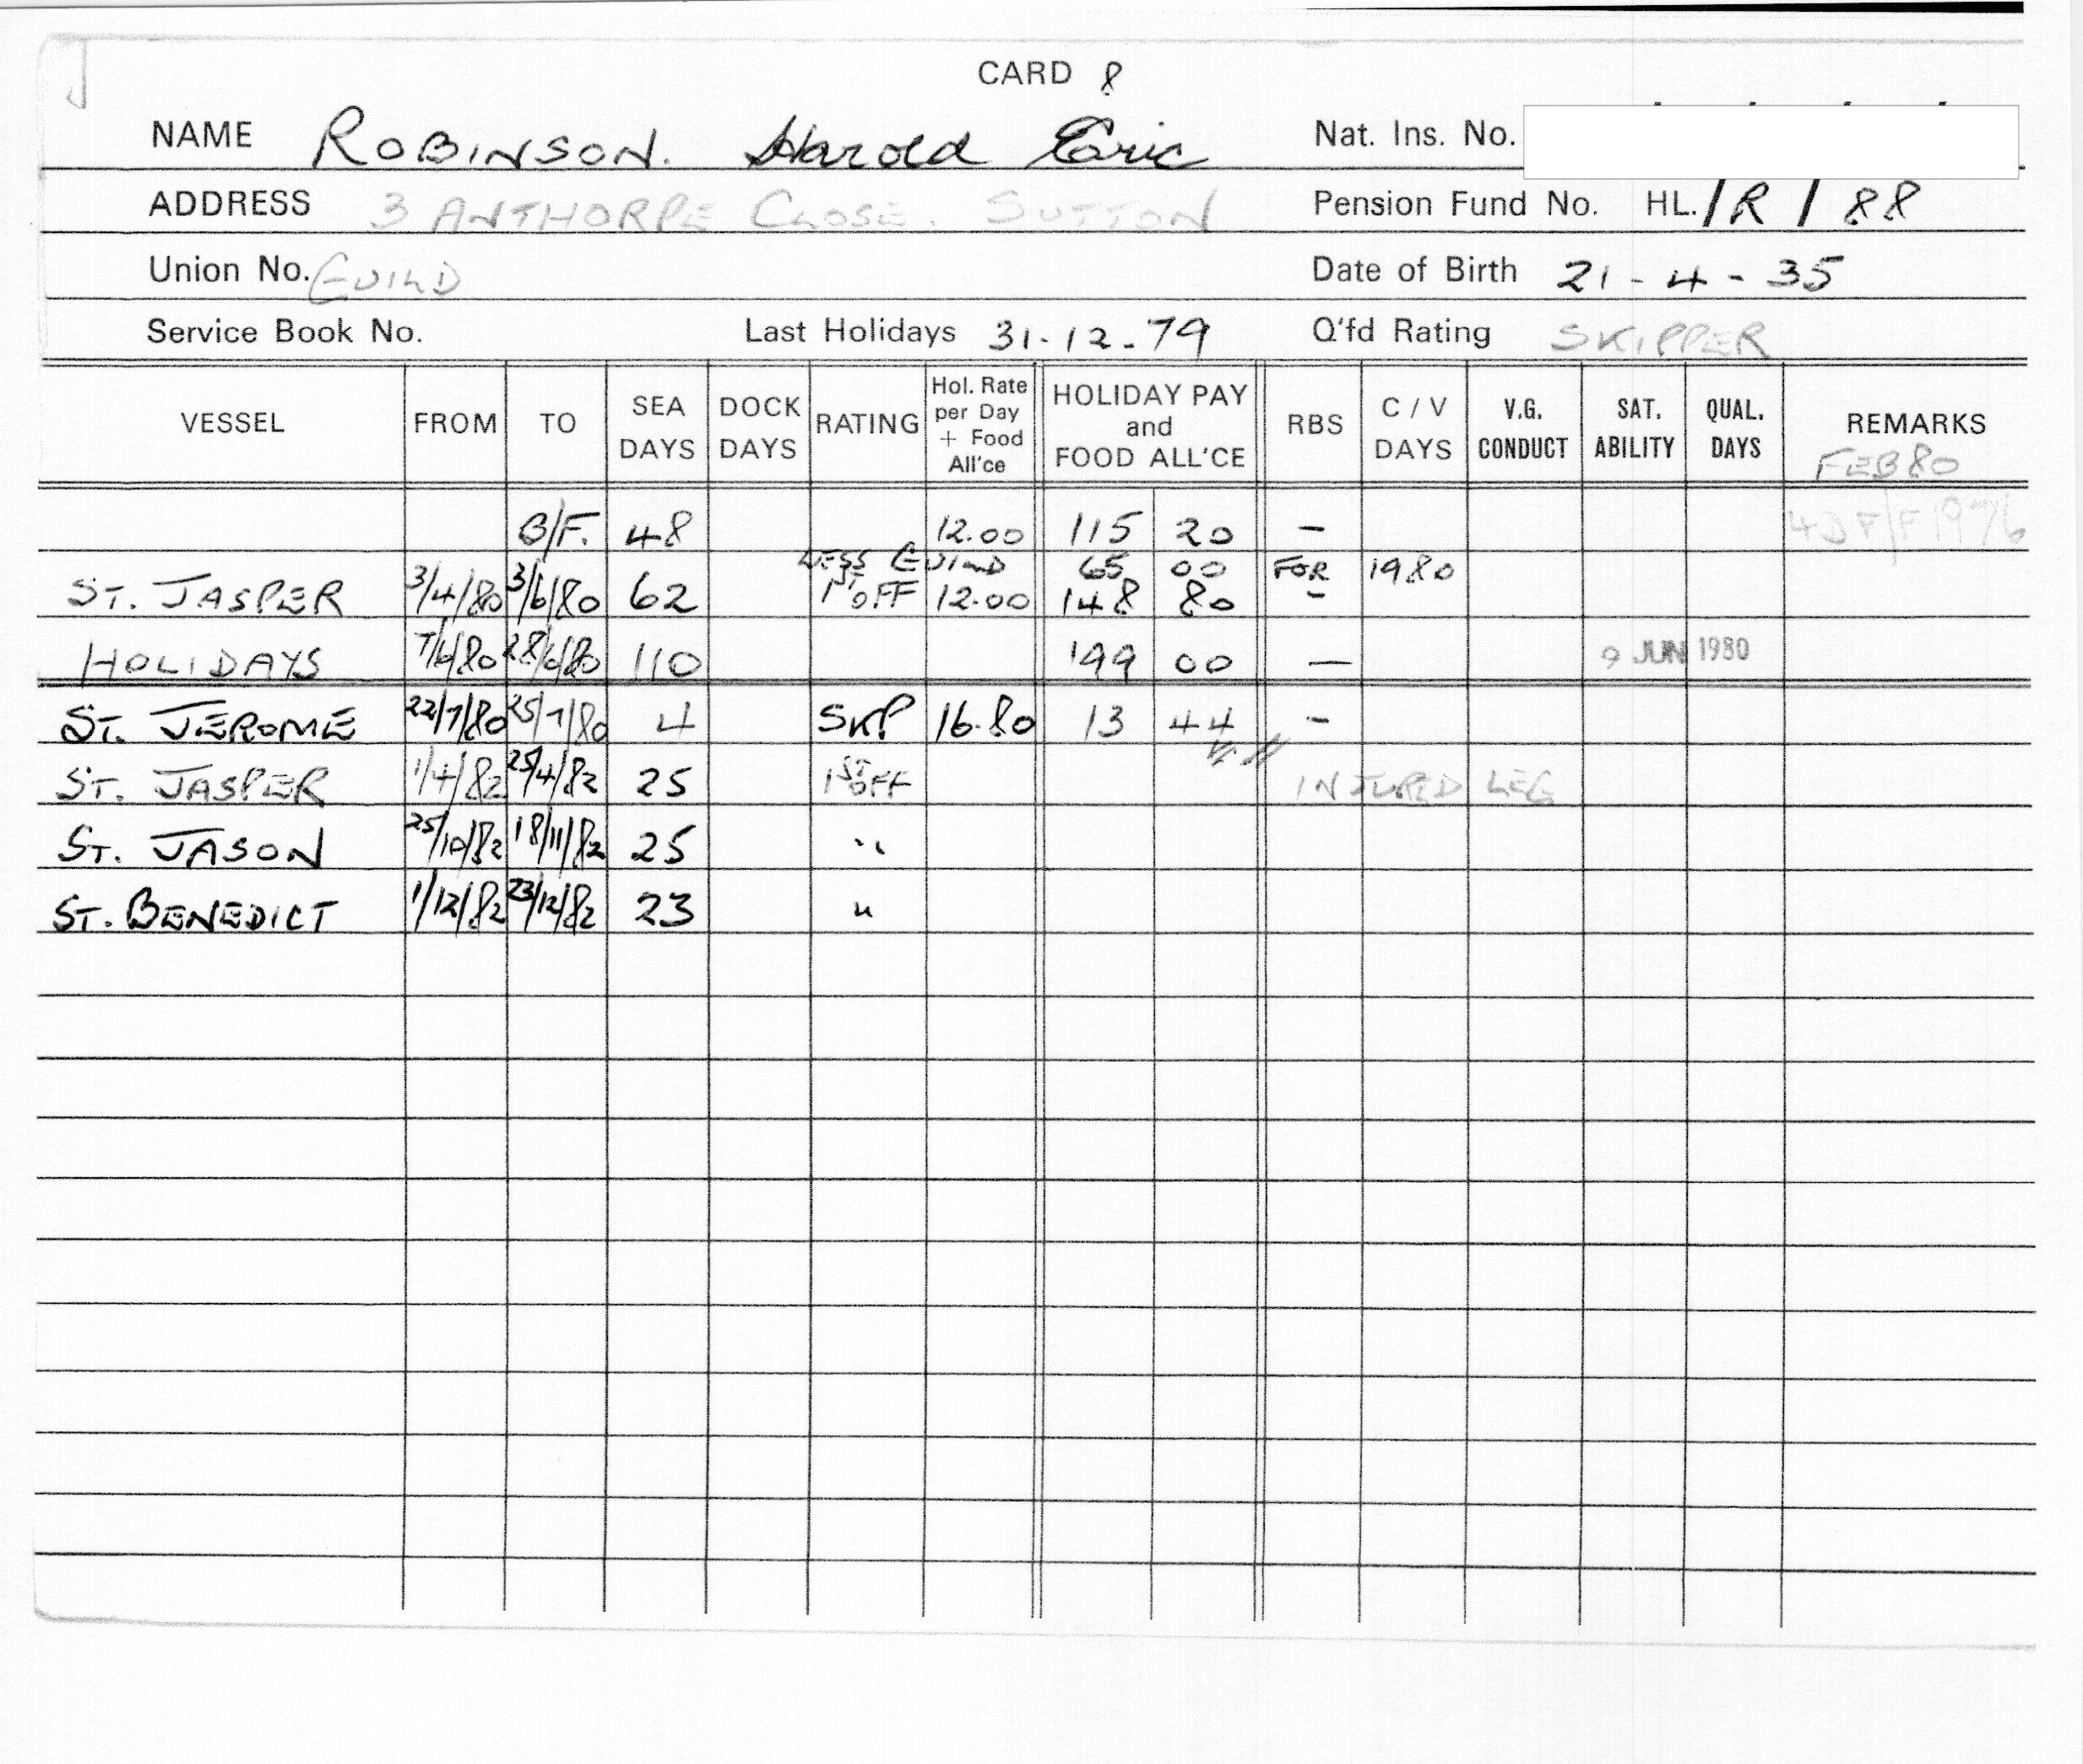 J
CARD 8
NAME ROBINSON. Harold Eric Nat. Ins. No.
ADDRESS 3 ANTHORPE CLOSE. SUTTON Pension Fund No. HL./R/88
Union No. GUILD Date of Birth 21-4-35
Service Book No. Last Holidays 31-12-79 Q'fd Rating SKIPPER
VESSEL FROM TO SEA DAYS DOCK DAYS RATING Hol. Rate per Day + Food All'ce HOLIDAY PAY and FOOD ALL'CE RBS C/V DAYS V.G. CONDUCT SAT. ABILITY QUAL. DAYS REMARKS
FEB 80
B/F. 48 12.00 115 20 –
LESS GUILD 65 00 FOR 1980
ST. JASPER 3/4/80 3/6/80 62 1ST OFF 12.00 148 80 –
HOLIDAYS 7/6/80 28/6/80 110 199 00 — 9 JUN 1980
ST. JEROME 22/7/80 25/7/80 4 SKP 16.80 13 44 –
ST. JASPER 1/4/82 25/4/82 25 1ST OFF INJURED LEG
ST. JASON 25/10/82 18/11/82 25 "
ST. BENEDICT 1/12/82 23/12/82 23 "